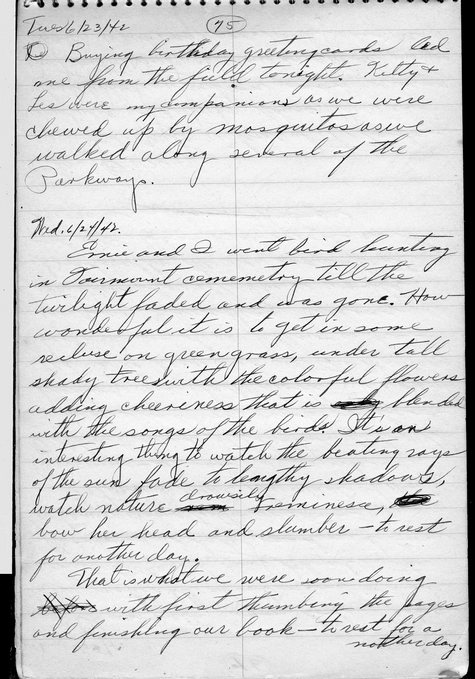 Tues 6/23/42
75
Buying birthday greeting cards led
one from the field tonight. Kitty &
Les were my companions as we were
chewed up by mosquitos as we
walked along several of the
Parkways.
Wed. 6/24/42.
Ernie and I went bird hunting
in Fairmount cememetry till the
twilight faded and was gone. How
wonderful it is to get in some
recluse on green grass, under tall
shady trees with the colorful flowers
adding cheeriness that is blended
with the songs of the birds. It's an
interesting thing to watch the beating rays
of the sun fade to lengthy shadows,
watch nature drowsily reminesce,
bow her head and slumber – to rest
for another day.
That is what we were soon doing
with first thumbing the pages
and finishing our book – to rest for a
nother day.